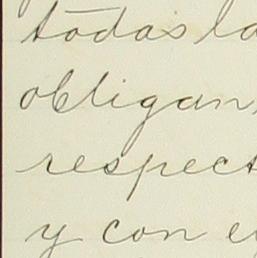 todas la
obligan
respect
y con e